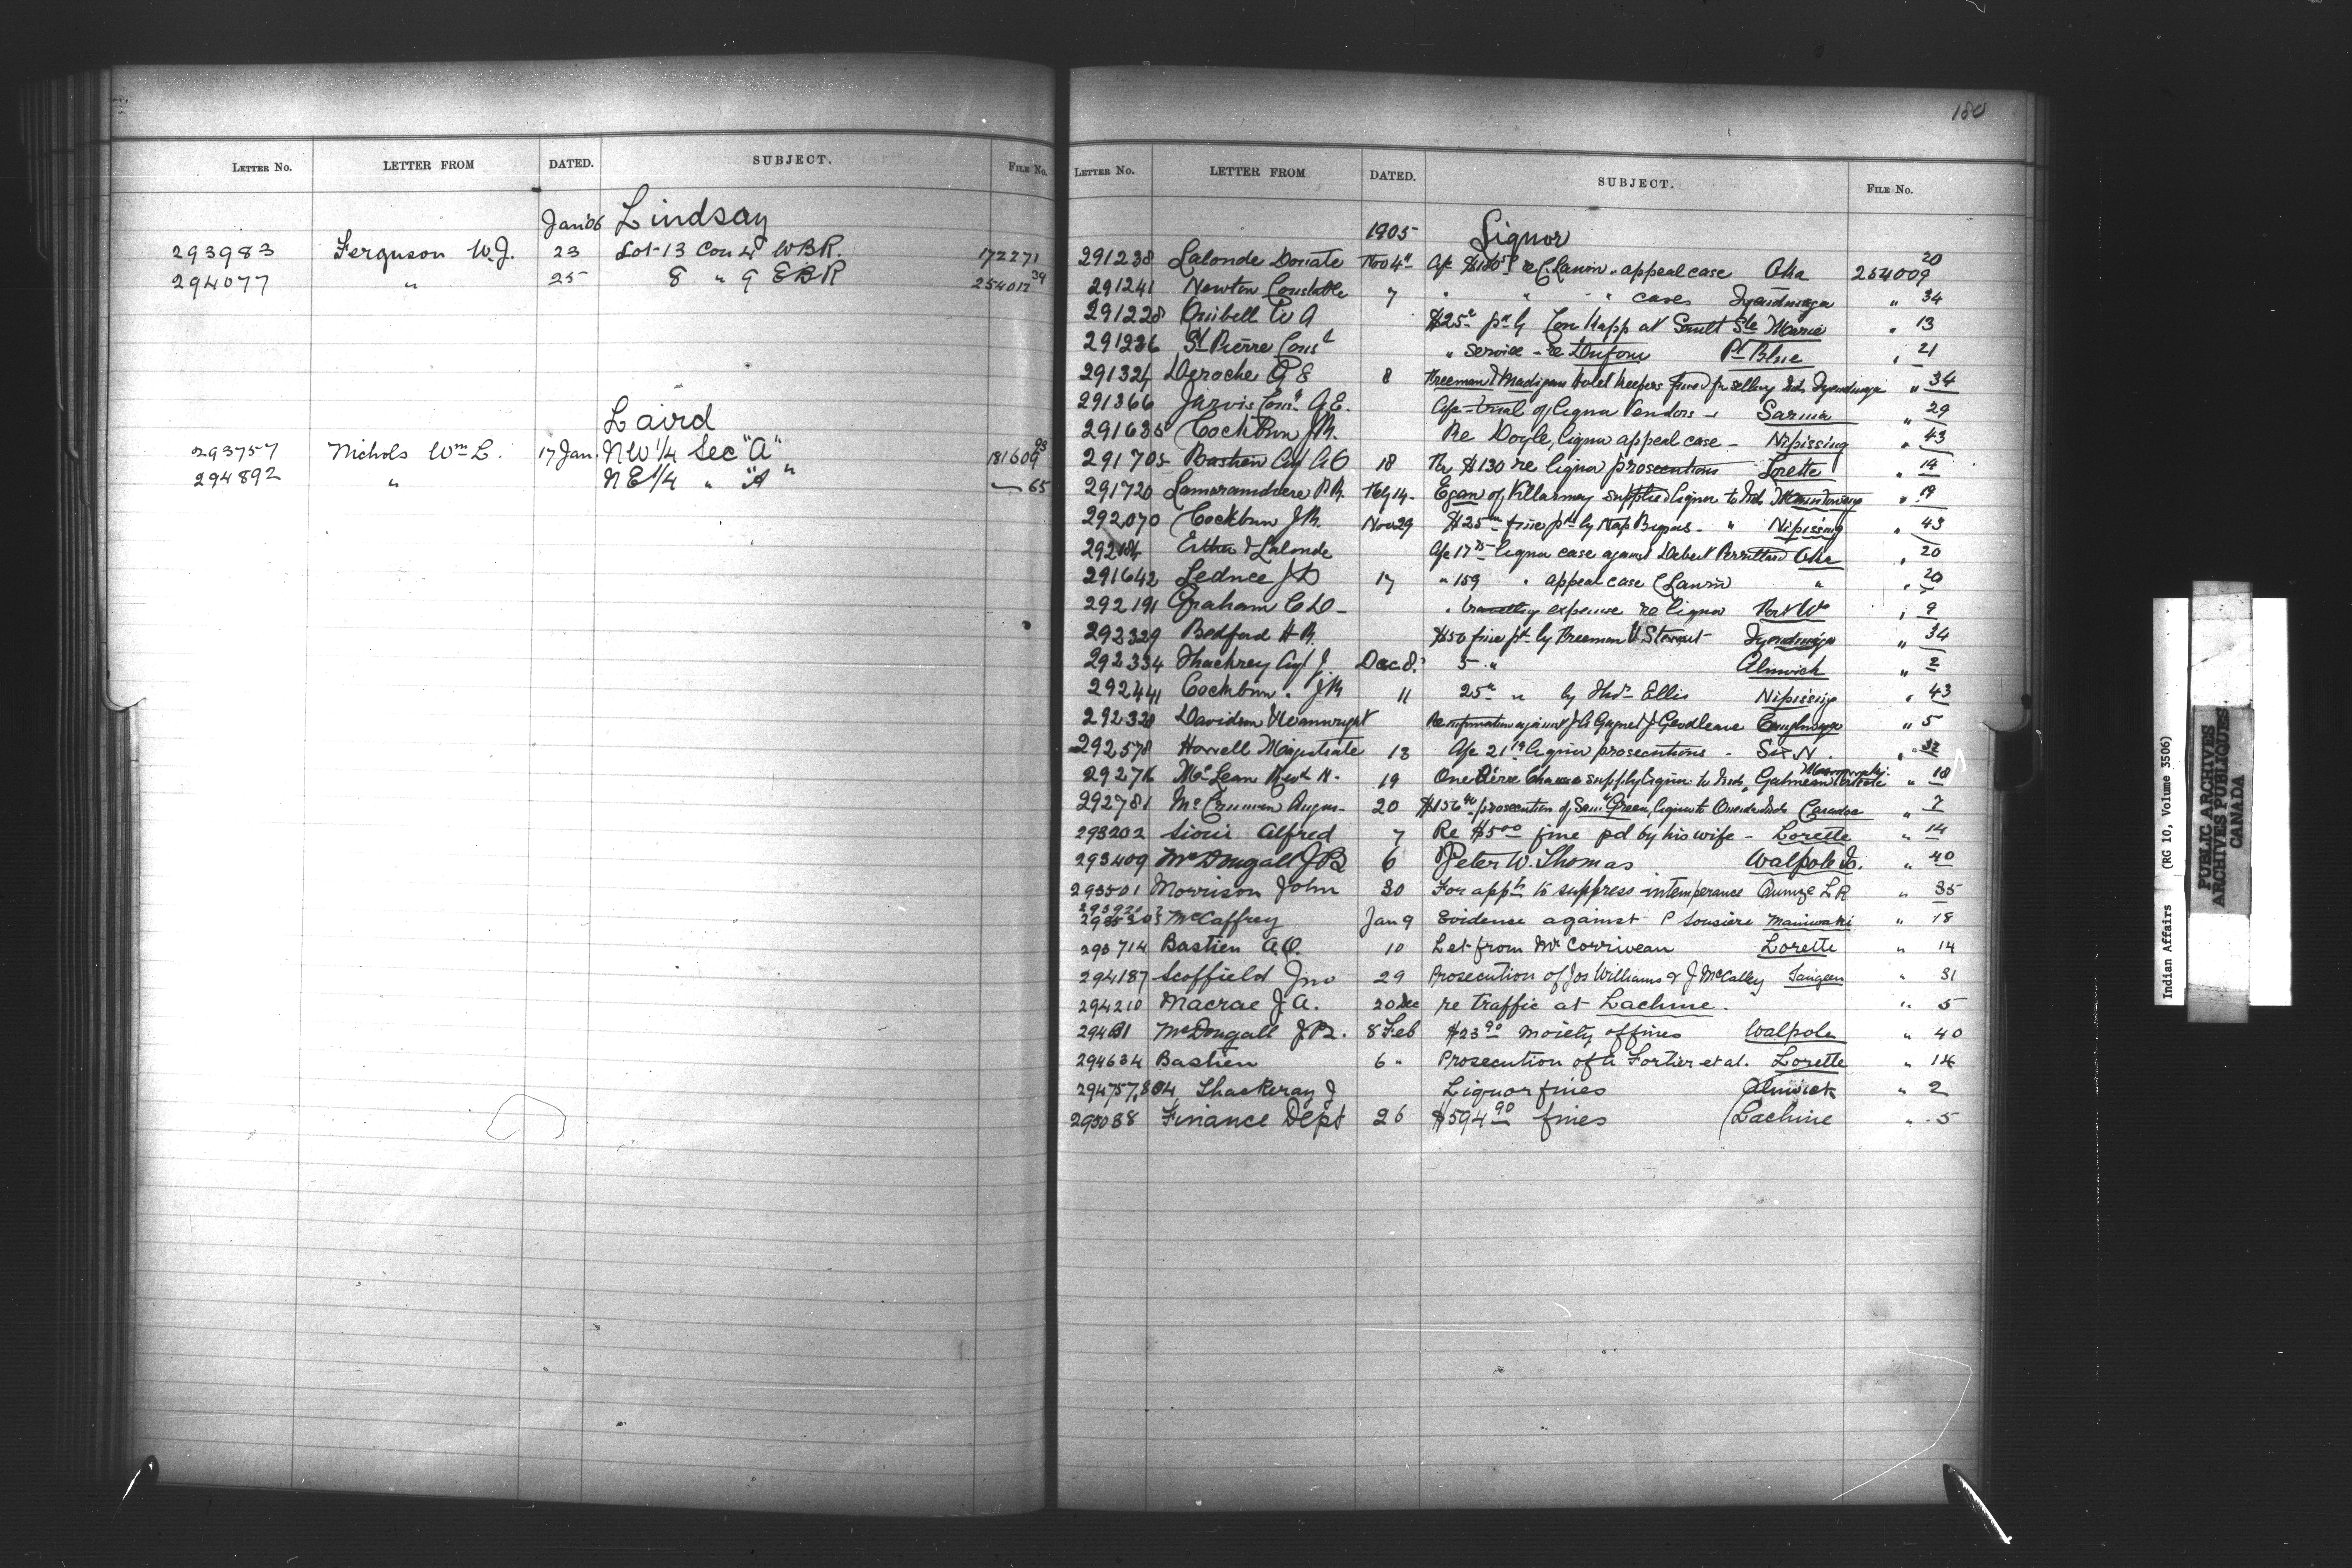 LETTER No. LETTER FROM DATED. SUBJECT. FILE No.
Jan '06 Lindsay
293983 Ferguson W.J. 23 Lot 13 Con 4 WBR. 172271
294077 " 25 8 " 9 EBR 254017 39
Laird
293757 Nichols Wm L. 17 Jan. NW 1/4 Sec "A" 181609 93
294892 " NE 1/4 " "A" 65
180
LETTER No. LETTER FROM DATED. SUBJECT. FILE No.
1905 Liquor
291238 Lalonde Donate Nov 4 appeal case Oka 254009 20
291241 Newton Constable 7 " " " cases Tyendinaga " 34
291228 Quibell W A $25 at Sault Ste Marie " 13
291236 St Pierre Cons " service - re Dufour Pt Blue " 21
291324 Deroche G E 8 Freeman & Madigan Hotel keepers fined for selling Inds Tyendinaga " 34
291366 Jarvis A.E. of liquor vendors - Sarnia " 29
291635 Cockburn J.R. Re Doyle, liquor appeal case - Nipissing " 43
291705 Bastien Agt A O 18 $130 re liquor prosecutions Lorette " 14
291720 14 - Egan of Killarney supplied liquor to Inds " 19
292070 Cockburn J.R. Nov 29 $25 fine pd by Nap " Nipissing " 43
& Lalonde liquor case against Oka " 20
291642 Leduc J D 17 " 159 " appeal case " " 20
292191 Graham C D - " travelling expense re liquor Fort Wm " 9
292329 Bedford H R. $50 fine pd by Freeman & Stewart Tyendinaga " 34
292334 Thackrey Agt J. Dec 8. 5 " Alnwick " 2
292441 Cockburn. J R 11 25 " by Thos Ellis Nipissing " 43
292328 Davidson & Wainwright Re information against Caughnawaga " 5
292578 Howell Magistrate 13 liquor prosecutions - Six N. " 32
McLean 19 supply liquor to Inds, " 18
292781 20 $156 prosecution of Saml Green, liquor to Oneida Inds Caradoc " 7
293202 Sioui Alfred 7 Re $5 00 fine pd by his wife - Lorette " 14
293409 McDougall J B 6 Peter W. Thomas Walpole Is. " 40
293501 Morrison John 30 For appt to suppress intemperance Quinze L R " 35
McCaffrey Jan 9 Evidence against P Maniwaki " 18
293714 Bastien A.O. 10 Let from Mr Corriveau Lorette " 14
294187 Scoffield Jno 29 Prosecution of Jos Williams & J McCalley Saugeen " 31
294210 Macrae J. A. 20 Dec re traffic at Lachine. " 5
McDougall J B. 8 Feb $23 90 moiety of fines Walpole " 40
294634 Bastien 6 " Prosecution of A Fortier et al. Lorette " 14
294757,804 Thackeray J Liquor fines Alnwick " 2
295038 Finance Dept 26 $594 90 fines Lachine " 5
Indian Affairs (RG 10, Volume 3506)
PUBLIC ARCHIVES
ARCHIVES PUBLIQUES
CANADA